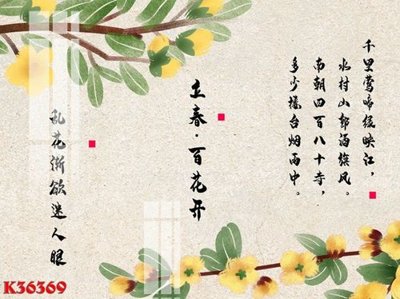 千里莺啼绿映江，
水村山郭酒旗风。
南朝四百八十寺，
多少楼台烟雨中。
立春·百花开
乱花渐欲迷人眼
K36369